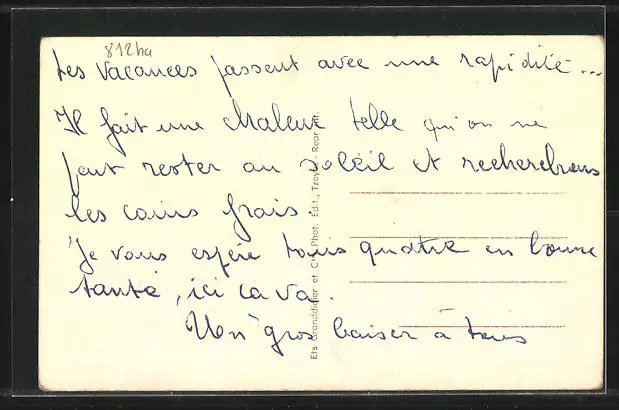 812ha
Les vacances passent avec une rapidité...
Il fait une chaleur telle qu'on ne
peut rester au soleil et recherchons
les coins frais.
Je vous espère tous quatre en bonne
santé, ici ca va.
Un gros baiser à tous
Ets Granddidier et C Phot. Édit., Troyes - Repr. int.